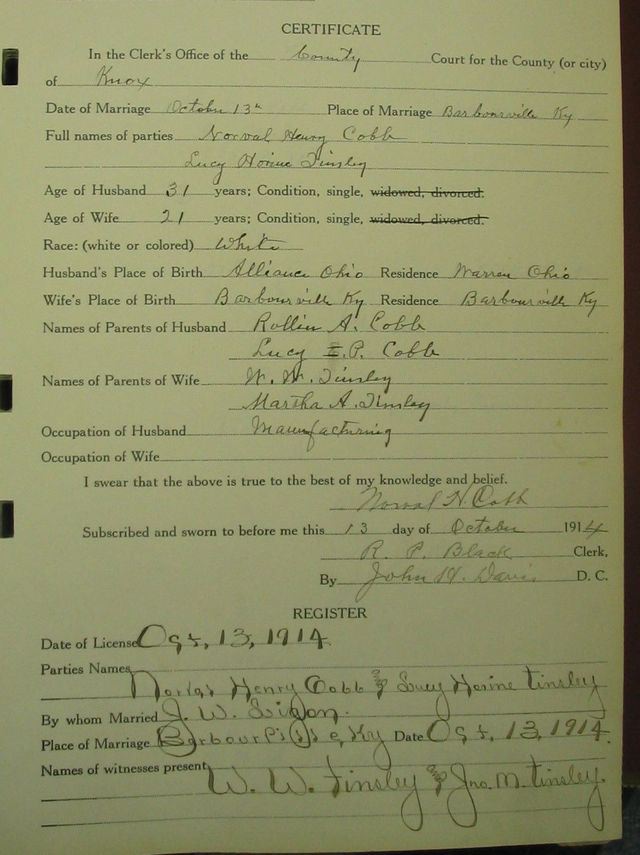 CERTIFICATE
In the Clerk's Office of the County Court for the County (or city)
of Knox
Date of Marriage October 13th Place of Marriage Barbourville Ky
Full names of parties Norval Henry Cobb
Lucy Horine Tinsley
Age of Husband 31 years; Condition, single, widowed, divorced.
Age of Wife 21 years; Condition, single, widowed, divorced.
Race: (white or colored) White
Husband's Place of Birth Alliance Ohio Residence Warren Ohio
Wife's Place of Birth Barbourville Ky Residence Barbourville Ky
Names of Parents of Husband Rollin A. Cobb
Lucy E.P. Cobb
Names of Parents of Wife W. W. Tinsley
Martha A. Tinsley
Occupation of Husband Manufacturing
Occupation of Wife
I swear that the above is true to the best of my knowledge and belief.
Norval H. Cobb
Subscribed and sworn to before me this 13 day of October 1914
R. P. Black Clerk,
By John H. Davis D. C.
REGISTER
Date of License Oct, 13, 1914
Parties Names
Norval Henry Cobb & Lucy Horine Tinsley
By whom Married J. W.
Place of Marriage Barbourville, Ky Date Oct, 13, 1914.
Names of witnesses present
W. W. Tinsley & Jno. M. Tinsley.